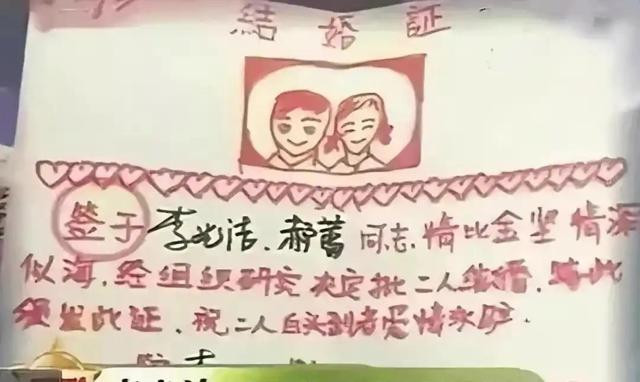 結婚証
签于李光洁、郝蕾同志,情比金坚情深
似海,经组织研究决定批二人结婚,特此
颁发此证,祝二人白头到老爱情永